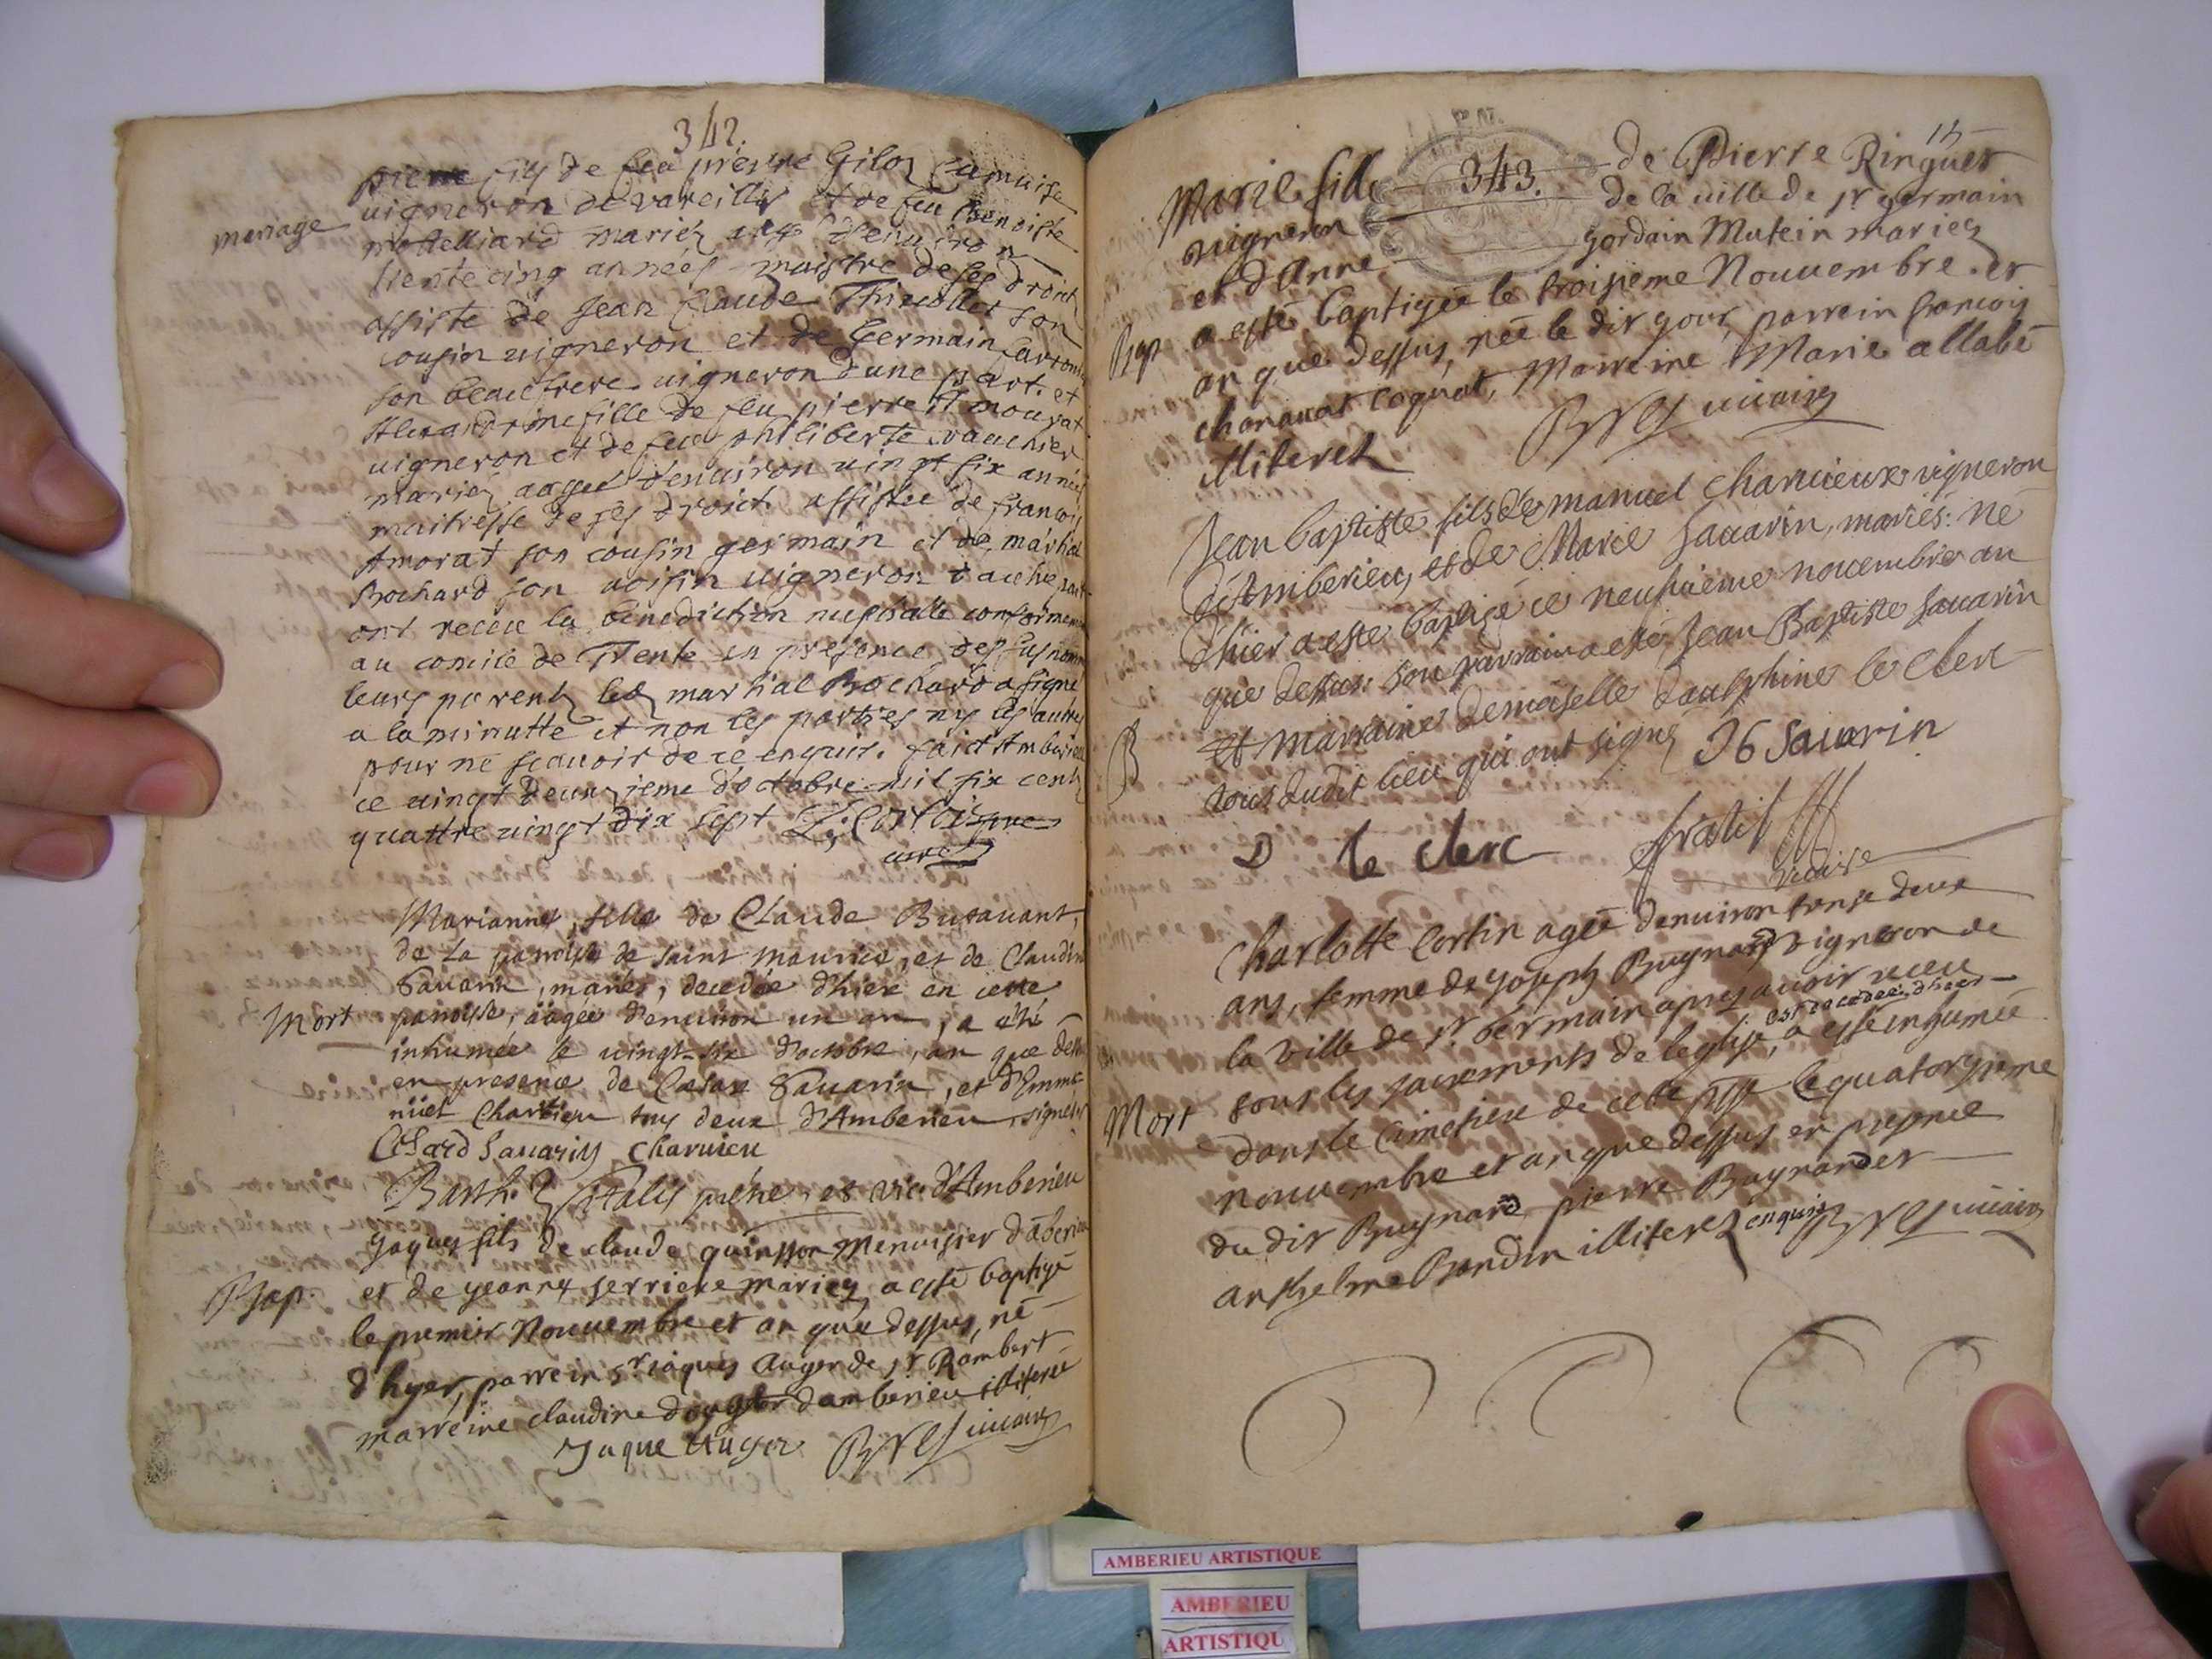 342.
mariage
pierre fils de feu pierre Giloz
vigneron de vareilles et de feu benoiste
mariez aagé d'environ
trente cinq années maistre de ses droict
assisté de Jean Claude Thievollet son
cousin vigneron et de Germain
son beaufrere vigneron d'une part. et
Alexandrine fille de feu pierre Amourat
vigneron et de feue philiberte vauchier
mariez aagee d'environ vingt six années
maitresse de ses droict assistée de françois
Amorat son cousin germain et de martial
Bochard son voisin vigneron d'autre part
ont receu la benediction nuptialle conformem
au concile de Trente en presence des susnom
leurs parents led martial Bochard a signé
a la minutte et non les parties ny les autres
pour ne scavoir de ce enquis. faict Amberieu
ce vingt deuxieme d'octobre mil six cents
quattre vingt dix sept
curé
Mort
Marianne, fille de Claude Buravant,
de la paroisse de saint Maurice, et de Claudine
Savarin, mariés, decedée d'hier en cette
paroisse, âagée d'environ un an, a été
inhumée le vingt-six d'octobre, an que dess
en presence de Cesare Savarin, et d'Emma-
nuel Charvieu tous deux d'Amberieu, signés
Cesard Savarin Charvieu
Barth. Vitalis prêtre, et vic. d'Amberieu
Bap.
Jaques fils de claude quinsson Menuisier d'aberieu
et de Jeanne ferriere mariez a esté baptizé
le premier Nouvembre et an que dessus, né
d'hyer, parrein sr jaques Auger de st Rambert
marreine claudine d'amberieu illiteré
Jaque Auger vicaire
343.
Marie fille de Pierre Ringuet
vigneron de la ville de st germain
et d'Anne Gordain Mutein mariez
Bap
a esté baptizée le troisieme Nouvembre et
an que dessus, née le dit jour, parrein françois
chanavat coquat, Marreine Marie allabé
illiterez
vicaire
B
Jean baptiste fils d'emanuel charvieux vigneron
d'Amberieu, et de Marie savarin, mariés. né
d'hier a esté baptisé ce neufvieme novembre an
que dessus. son parrain a esté Jean Baptiste savarin
et marraine demoiselle dausphine le clerc
tous dudit lieu qui ont signé J b Savarin
D le clerc
Mort
Charlotte Cortin agée d'environ trente deux
ans, femme de joseph Buynard vigneron de
la ville de st Germain apres avoir receu
tous les sacrements de l'eglise, est decedée d'hier a esté inhumée
dans le Cimetiere de cette psse le quatorzieme
Nouvembre et an que dessus en presence
du dit Buynard pierre Buynard et
anthelme Bondin illiterez enquis vicaire
AMBERIEU ARTISTIQUE
AMBERIEU
ARTISTIQU